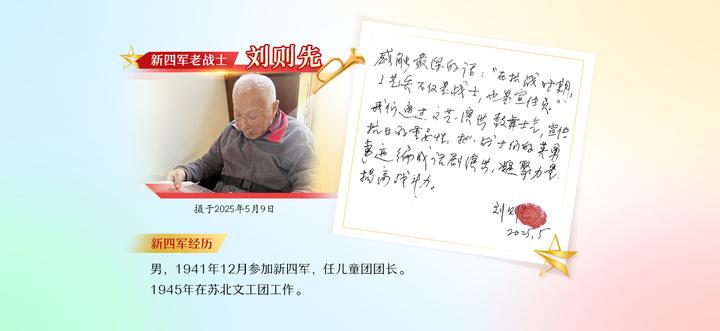 新四军老战士 刘则先
摄于2025年5月9日
新四军经历
男，1941年12月参加新四军，任儿童团团长。
1945年在苏北文工团工作。
感触最深的话：“在抗战时期，
文艺兵不仅是战士，也是宣传员”
我们通过文艺演出鼓舞士气，宣传
抗日的重要性，把战士们的英勇
事迹编成话剧演出，凝聚力量
提高战斗力。
刘则
2025.5